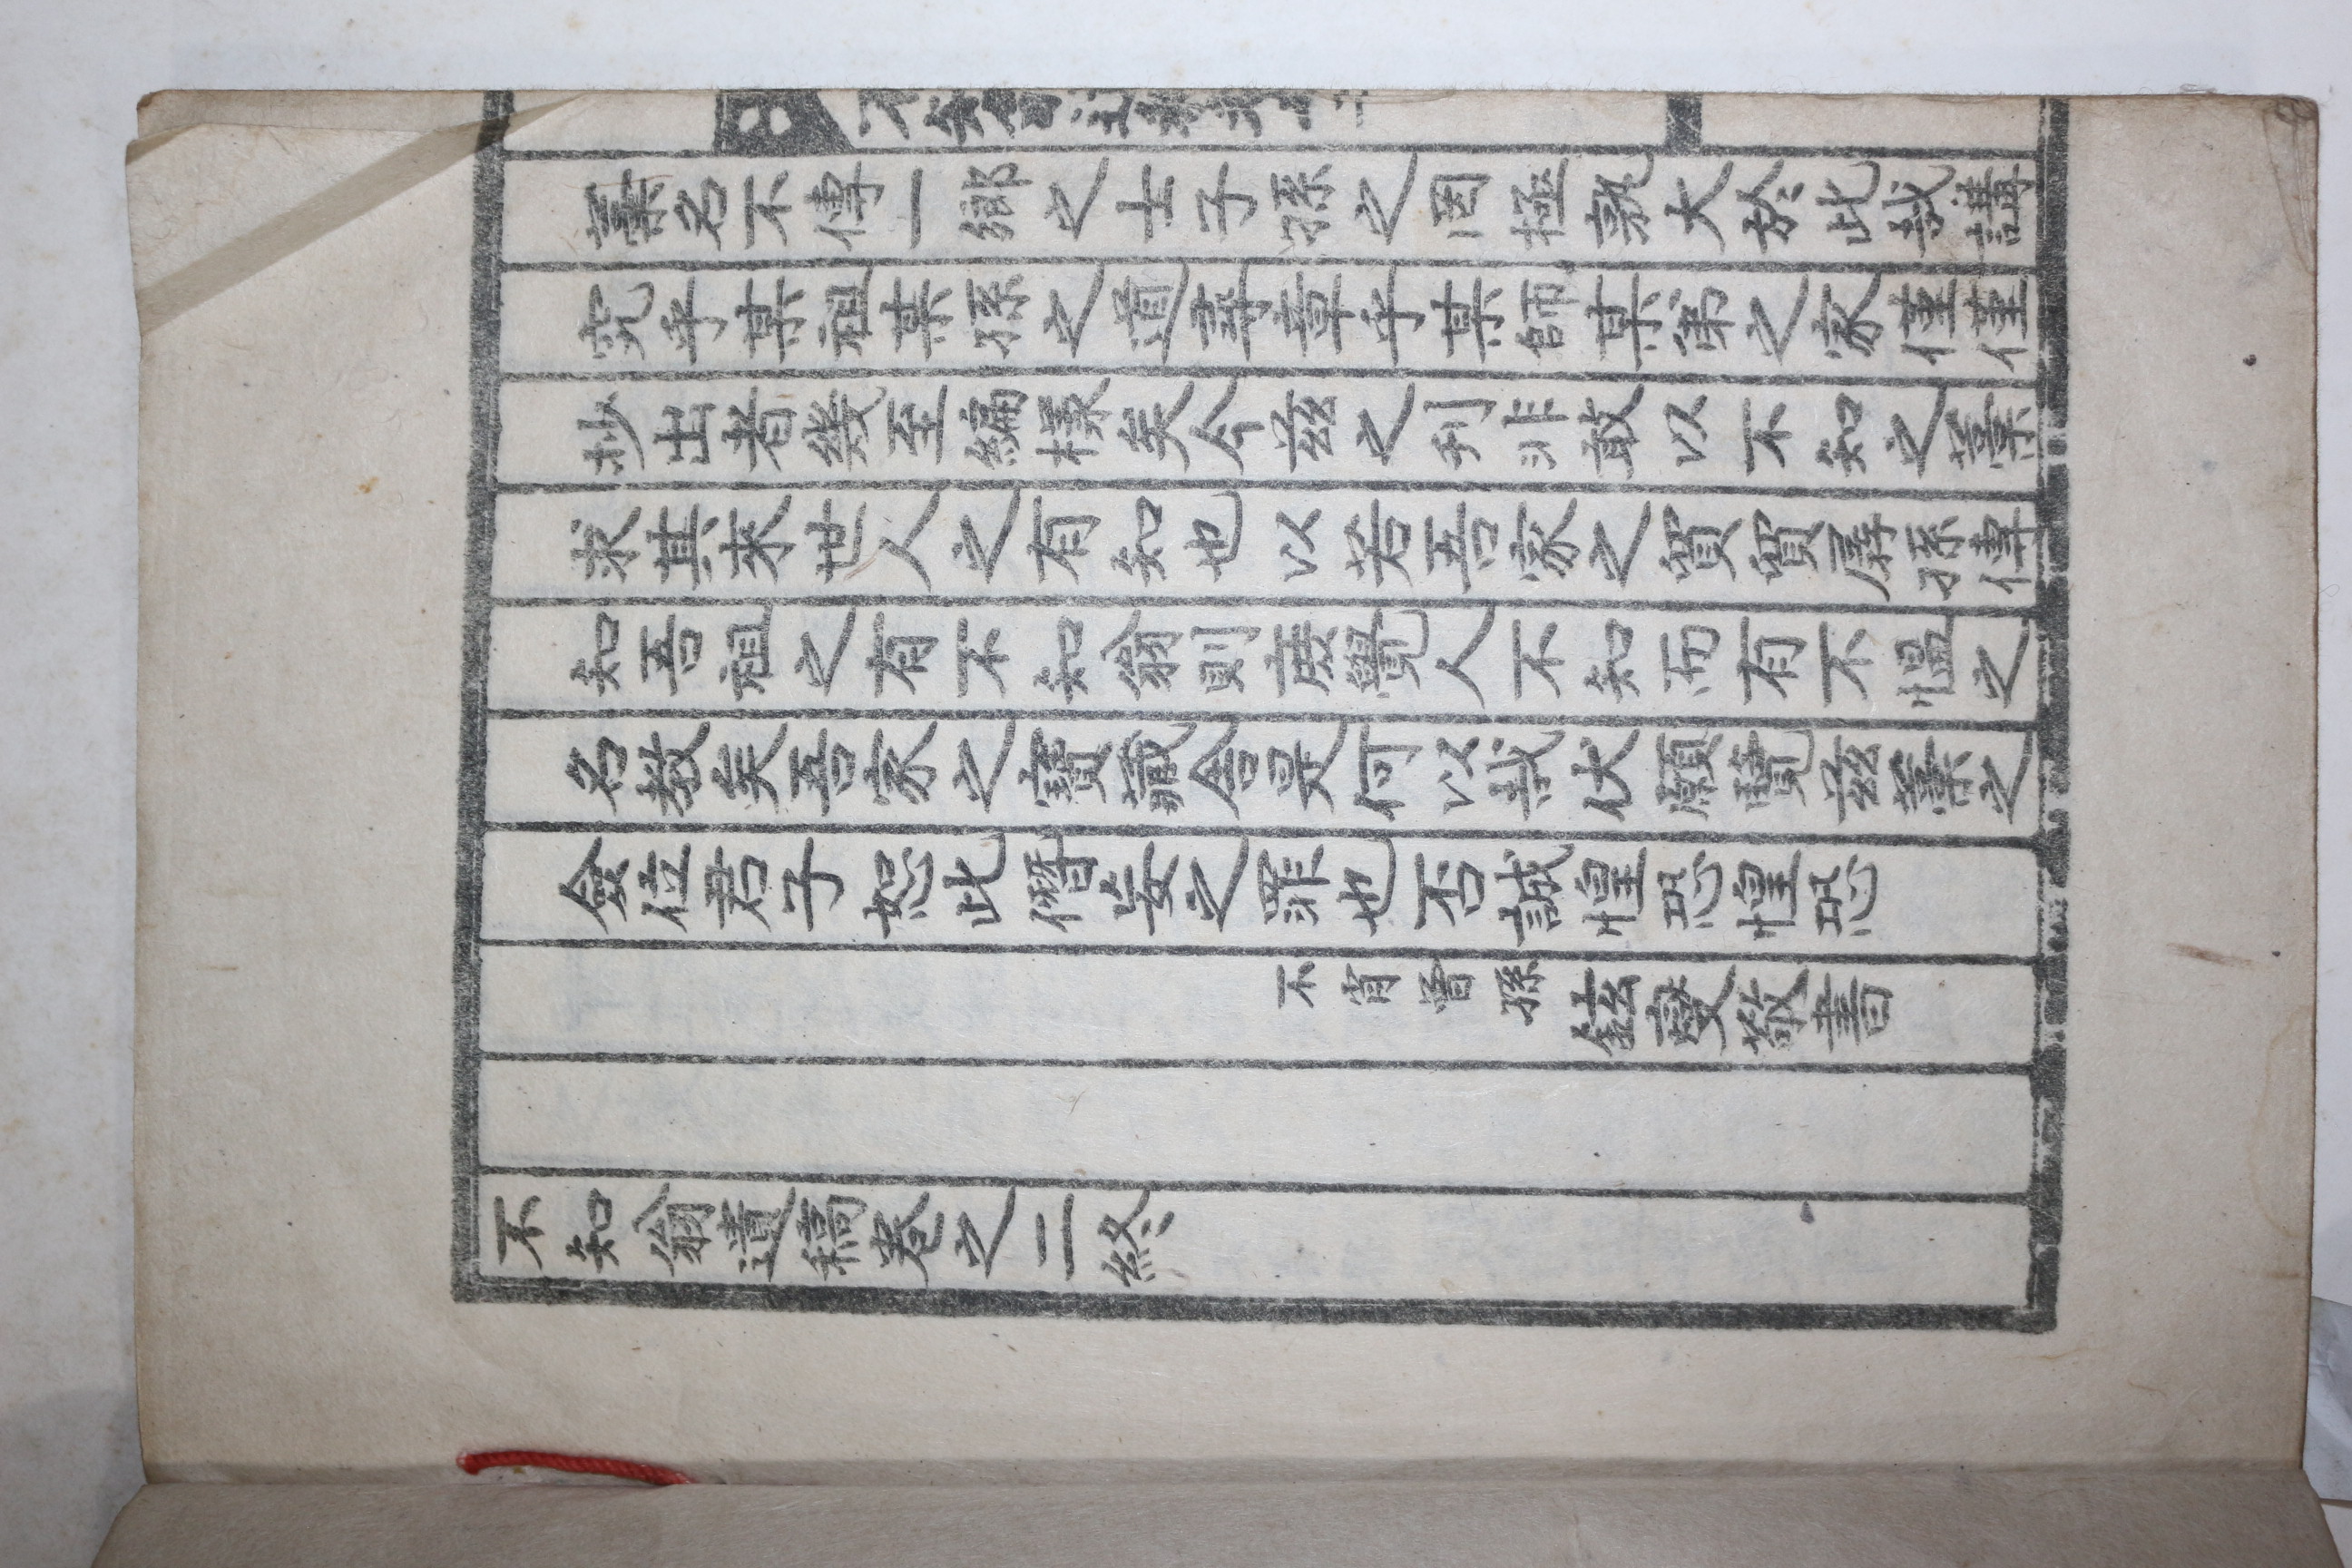 藁名不傳一鄉之士子孫之罔極孰大於此哉講
究乎某祖某孫之道尋章乎某師某弟之家僅僅
抄出者幾至編樣矣今玆之刊非敢以不知之藁
求其來世人之有知也以若吾家之貿貿孱孫傳
知吾祖之有不知翁則庶覺人不知而有不慍之
名教矣吾家之寶藏舍是何以哉伏願覽玆藁之
僉位君子恕此僭妄之罪也否誠惶恐惶恐
不肖曾孫鉉燮敬書
不知翁遺稿卷之二終